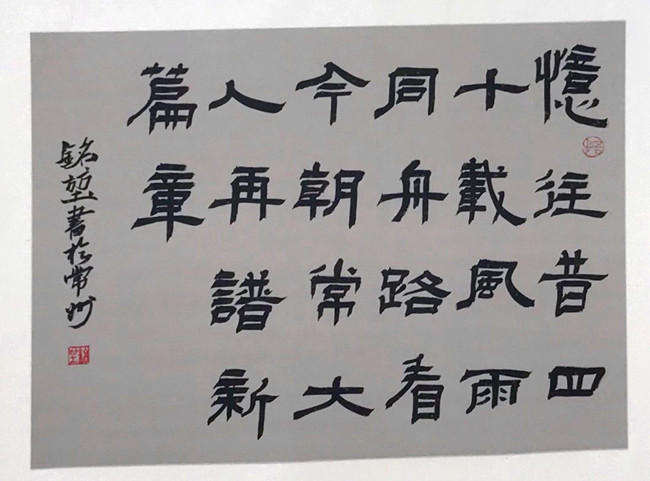 憶往昔四
十載風雨
同舟路看
今朝常大
人再譜新
篇章
銘堃書於常州